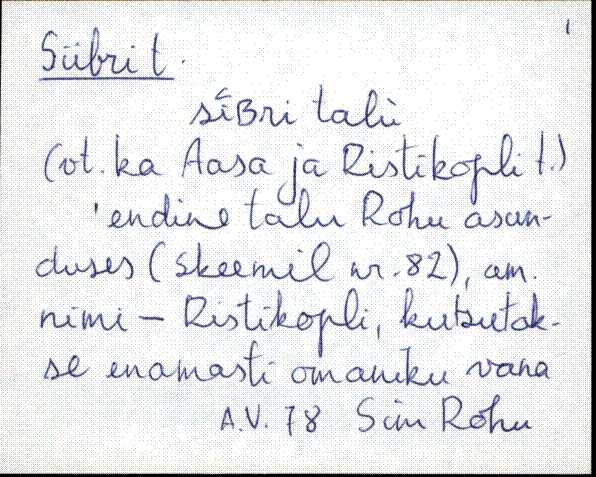 1
Siibri t.
sīʙri talù
(vt. ka Aasa ja Ristikopli t.)
'endine talu Rohu asun-
duses (skeemil nr. 82), am.
nimi - Ristikopli, kutsutak-
se enamasti omaniku vana
A.V. 78 Sim Rohu